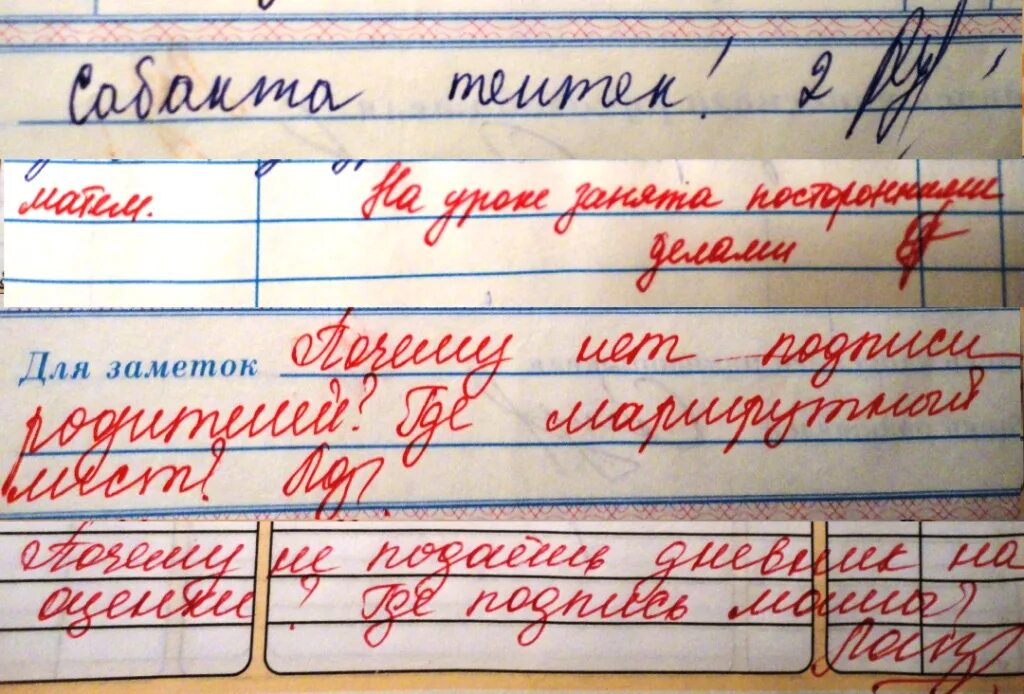 Сабакта тентек! 2
матем. На уроке занята посторонними
делами
Для заметок Почему нет подписи
родителей? Где маршрутный
лист?
Почему не подаёшь дневник на
оценки? Где подпись мамы?